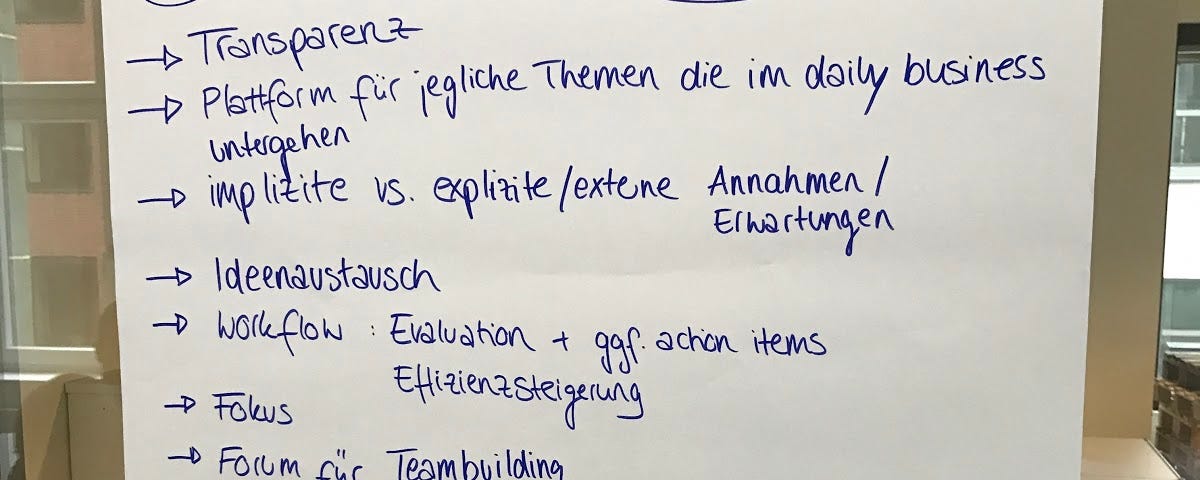 → Transparenz
→ Plattform für jegliche Themen die im daily business
untergehen
→ implizite vs. explizite/extene Annahmen/
Erwartungen
→ Ideenaustausch
→ Workflow : Evaluation + ggf. action items
Effizienzsteigerung
→ Fokus
→ Forum für Teambuilding